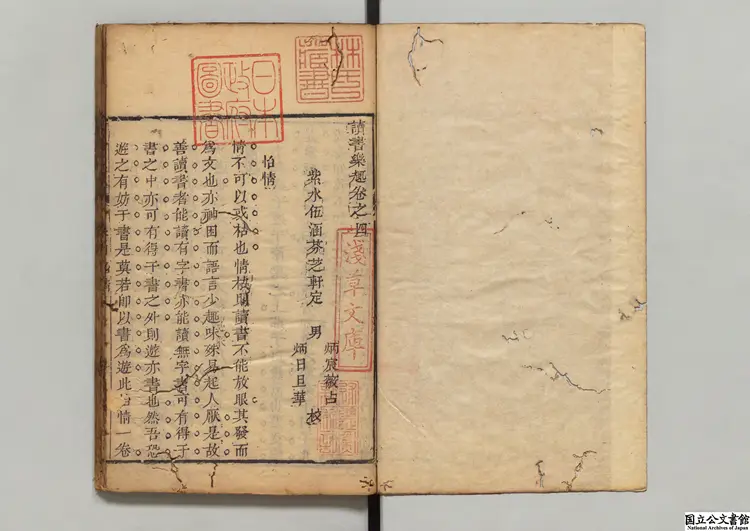 讀書樂趣卷之四
紫水伍涵芬芝軒定 男 炳宸 炳日旦華 校
怡情
情不可以或枯也情枯則讀書不能放眼其發而
為文也亦神困而語言少趣味桀易起人厭是故
善讀書者能讀有字書亦能讀無字書可有得于
書之中亦可有得于書之外則遊亦書也然吾恐
遊之有妨于書是莫若即以書為遊此怡情一卷
日本
政府
圖書
淺草文庫
藏書
国立公文書館
National Archives of Japan